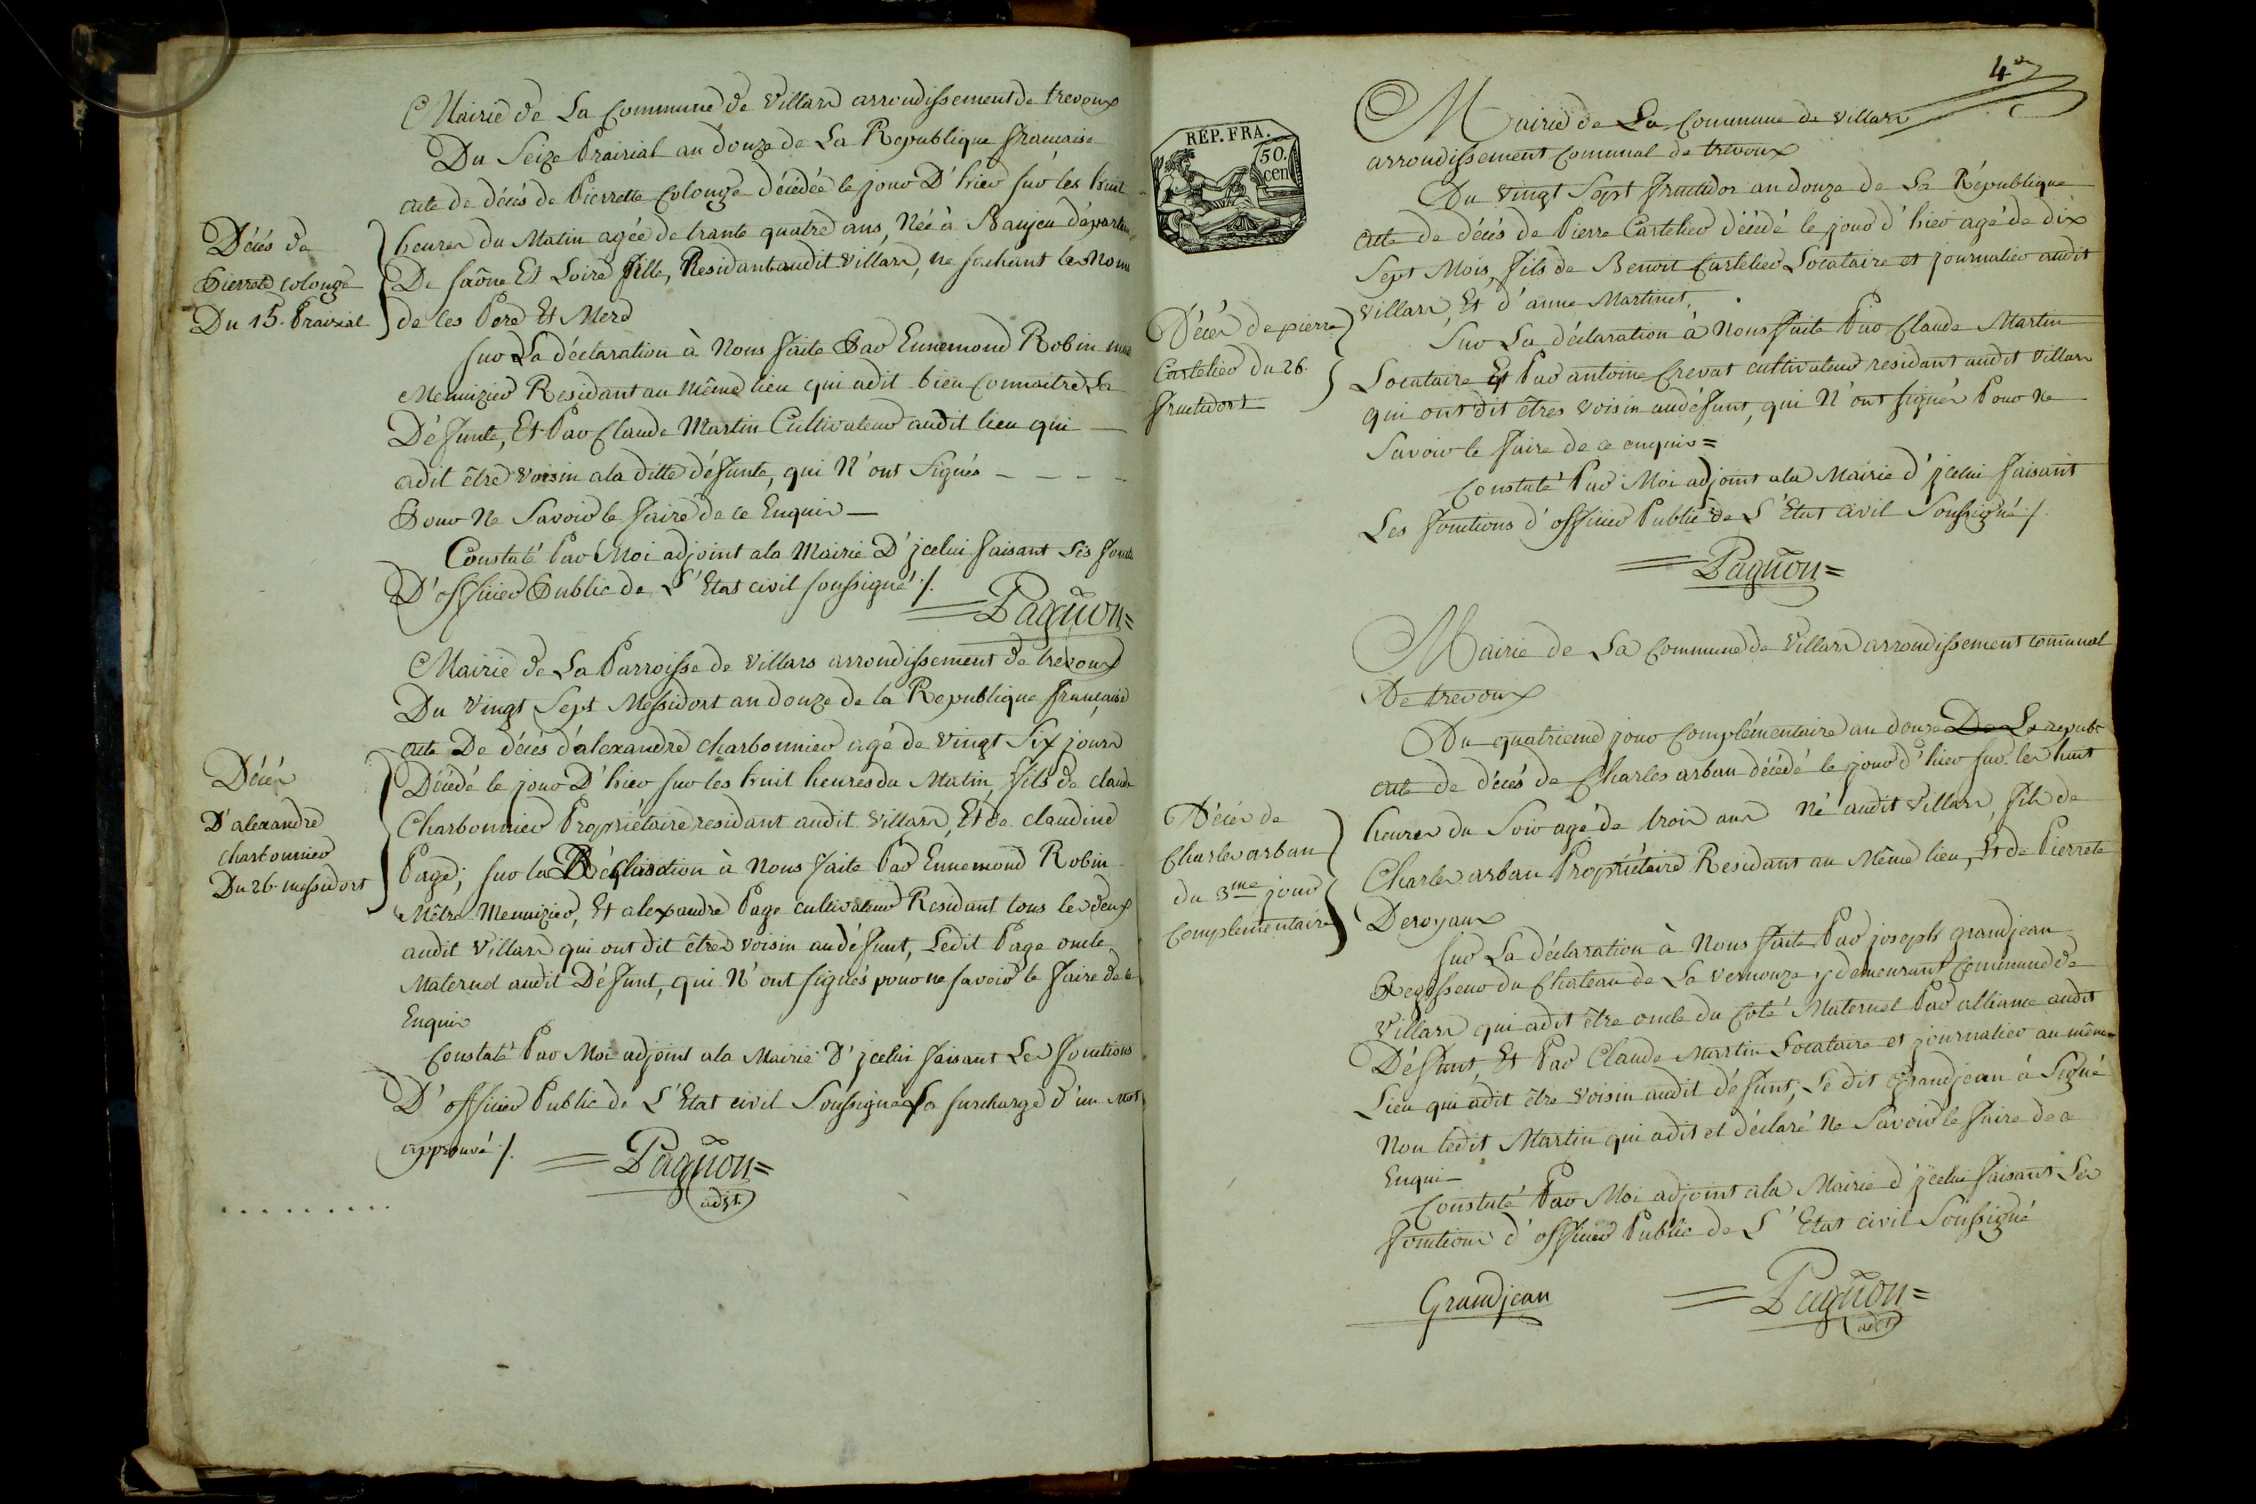 Mairie de La Commune de Villars arrondissement de trevoux
Du Seize Prairial an douze de La Republique francaise
acte de décés de Pierrette Colonge décédée le jour D'hier sur les huit
heures du Matin agée de trante quatre ans, Née à Baujeu départem
De saône Et Loire fille, Residant audit Villars, ne sachant les Noms
de ses Pere Et Mere
Décés de
Pierrete colonge
Du 15. Prairial
sur La déclaration à Nous faite Par Ennemond Robin
Menuizier Residant au même lieu qui adit bien connaitre La
Défunte, Et Par Claude Martin Cultivateur audit lieu qui
adit être voisin ala ditte défunte, qui N'ont Signés
Pour Ne Savoir le faire de ce Enquis
Constaté Par Moi adjoint ala Mairie D'jcelui faisant Les
D'officier Public de L'Etat civil soussigné ./.
Pagnon
Mairie de La Parroisse de Villars arrondissement de trevoux
Du Vingt Sept Messidort an douze de la Republique française
acte De décés d'alexandre charbonnier agé de vingt Six jours
Décédé le jour D'hier sur les huit heures du Matin, fils de claude
Charbonnier Propriétaire residant audit Villars, Et de claudine
Page; sur la Déclaration à Nous faite Par Ennemond Robin
Mêtre Menuizier, Et alexandre Page cultivateur Residant tous les deux
audit Villars qui ont dit êtres voisin audéfunt, Ledit Page oncle
Maternel audit Défunt, qui N'ont signés pour ne savoir le faire de ce
Enquis
Décés
D'alexandre
charbonnier
Du 26 messidort
Constaté Par Moi adjoint ala Mairie D'jcelui faisant Les fonctions
D'officier Public de L'Etat civil Soussigné La surcharge d'un Mot
approuvé ./.
Pagnon
adjt.
4e
RÉP. FRA.
50.
cen
Mairie de La Commune de Villars
arrondissement Comunal de trevoux
Du vingt Sept fructidor an douze de La République
acte de décés de Pierre Cartelier décédé le jour d'hier agé de dix
Sept Mois, fils de Benoit Cartelier Locataire et journalier audit
Villars, Et d'anne Martinet.
Décés de pierre
Cartelier du 26.
fructidort
Sur La déclaration à Nous faite Par Claude Martin
Locataire Et Par antoine Crevat cultivateur residant audit Villars
qui ont dit êtres voisin audéfunt, qui N'ont signés Pour Ne
Savoir le faire de ce enquis =
Constaté Par Moi adjoint ala Mairie d'jcelui faisant
Les fonctions d'officier Public de L'Etat civil Soussigné ./.
Pagnon
Mairie de La Commune de Villars arrondissement comunal
De trevoux
Du quatrieme jour Complémentaire an douze De La republ
acte de décés de Charles arban décédé le jour d'hier sur les huit
heures du Soir agé de trois ans Né audit Villars, fils de
Charles arban Propriétaire Residant au Même lieu, Et de Pierrete
Deroyaux
Décés de
Charles arban
du 3me jour
Complémentaire
sur La déclaration à Nous faite Par joseph grandjean
Regisseur du Chateau de La vernouze y demeurant Commune de
Villars qui adit être oncle du Coté Maternel Par alliance audit
Défunt, Et Par Claude Martin Locataire et journalier au même
Lieu qui adit être voisin audit défunt; Le dit Grandjean à Signé
Non ledit Martin qui adit et déclaré Ne Savoir le faire de ce
Enquis
Constaté Par Moi adjoint ala Mairie d'jcelui faisant Les
fonctions d'officier Public de L'Etat civil Soussigné
Grandjean
Pagnon
adjt